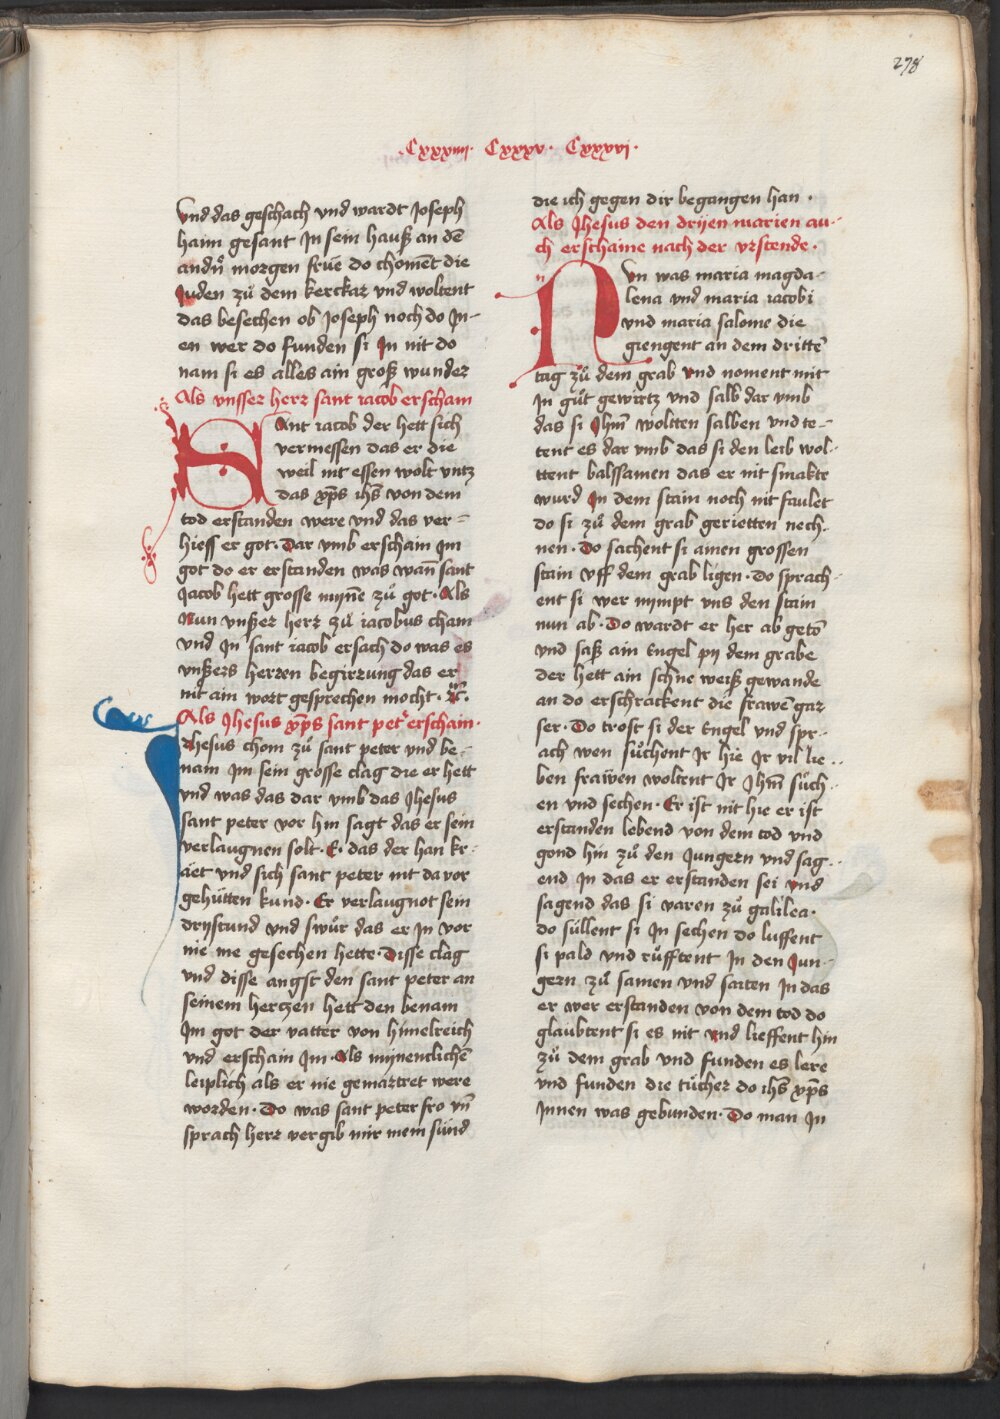 278
Cxxxiiii. Cxxxv. Cxxxvi.
Vnd das geschach vnd wardt Joseph
haim gesant Jn sein hauß an dē
andn̄ morgen frue do choment die
Juden zů dem kerckar vnd woltent
das besechen ob Joseph noch do Jn-
en wer do funden si Jn nit do
nam si es alles ain groß wunder
Als vnsser herr sant iacob erscham
SAnt iacob der hett sich
vermessen das er die
weil nit essen wolt vntz
das xp̄s ih̄s von dem
tod erstanden were vnd das ver=
hiess er got. Dar vmb erschain Jm
got do er erstanden was wan̄ sant
Jacob hett grosse myne zů got. Als
Nun vnßer herr zů iacobus cham
vnd Jn sant iacob ersach do was es
vnßers herren begirrung das er
nit ain wort gesprechen mocht.
Als Jhesus xp̄s sant pet erscham.
Jhesus chom zů sant peter vnd be-
nam Jm sein grosse clag die er hett
vnd was das dar vmb das Jhesus
sant peter vor hin sagt das er sein
verlaugnen solt. E. das der han kr-
äet vnd sich sant peter nit da vor
gehütten kund. Er verlaugnot sein
drystund vnd swůr das er Jn vor
nie me gesechen hette. Disse clag
vnd disse angst den sant peter an
seinem hertzen hett den benam
Jm got der vatter von himelreich
vnd erscham Jm. Als mynentlichē
leiplich als er nie gemartret were
worden. Do was sant peter fro vn̄
sprach herr vergib mir mein sünd
die ich gegen dir begangen han.
Als Jhesus den drijen marien au-
ch erschaine nach der vrstende.
NVn was maria magda-
lena vnd maria iacobi
vnd maria salome die
giengent an dem drittē
tag zů dem grab vnd noment mit
Jn gůt gewirtz vnd salb dar vmb
das si Jhm̄ woltten salben vnd te-
tent es dar vmb das si den leib wol-
ttent balssamen das er nit smakte
wurd Jn dem stain noch nit faulet
do si zů dem grab gerietten nech-
nen. Do sachent si ainen grossen
stain vff dem grab ligen. Do sprach-
ent si wer nympt vns den stain
nun ab. Do wardt er her ab getō
vnd saß ain Engel pij dem grabe
der hett ain schne weiß gewande
an do erschrackent die frawē gar
ser. Do trost si der Engel vnd spr-
ach wen sůchent Jr hie Jr vil lie-
ben frawen woltent Jr Jhm̄ sůch-
en vnd sechen. Er ist nit hie er ist
erstanden lebend von dem tod vnd
gond hin zů den Jungern vnd sag-
end Jn das er erstanden sei vnd
sagend das si varen zů galilea.
do süllent si Jn sechen do luffent
si pald vnd růfftent Jn den Jun-
gern zů samen vnd saiten Jn das
er wer erstanden von dem tod do
glaubtent si es nit vnd lieffent hin
zů dem grab vnd funden es lere
vnd funden die tůcher do ih̄s xp̄s
Jnnen was gebunden. Do man Jn